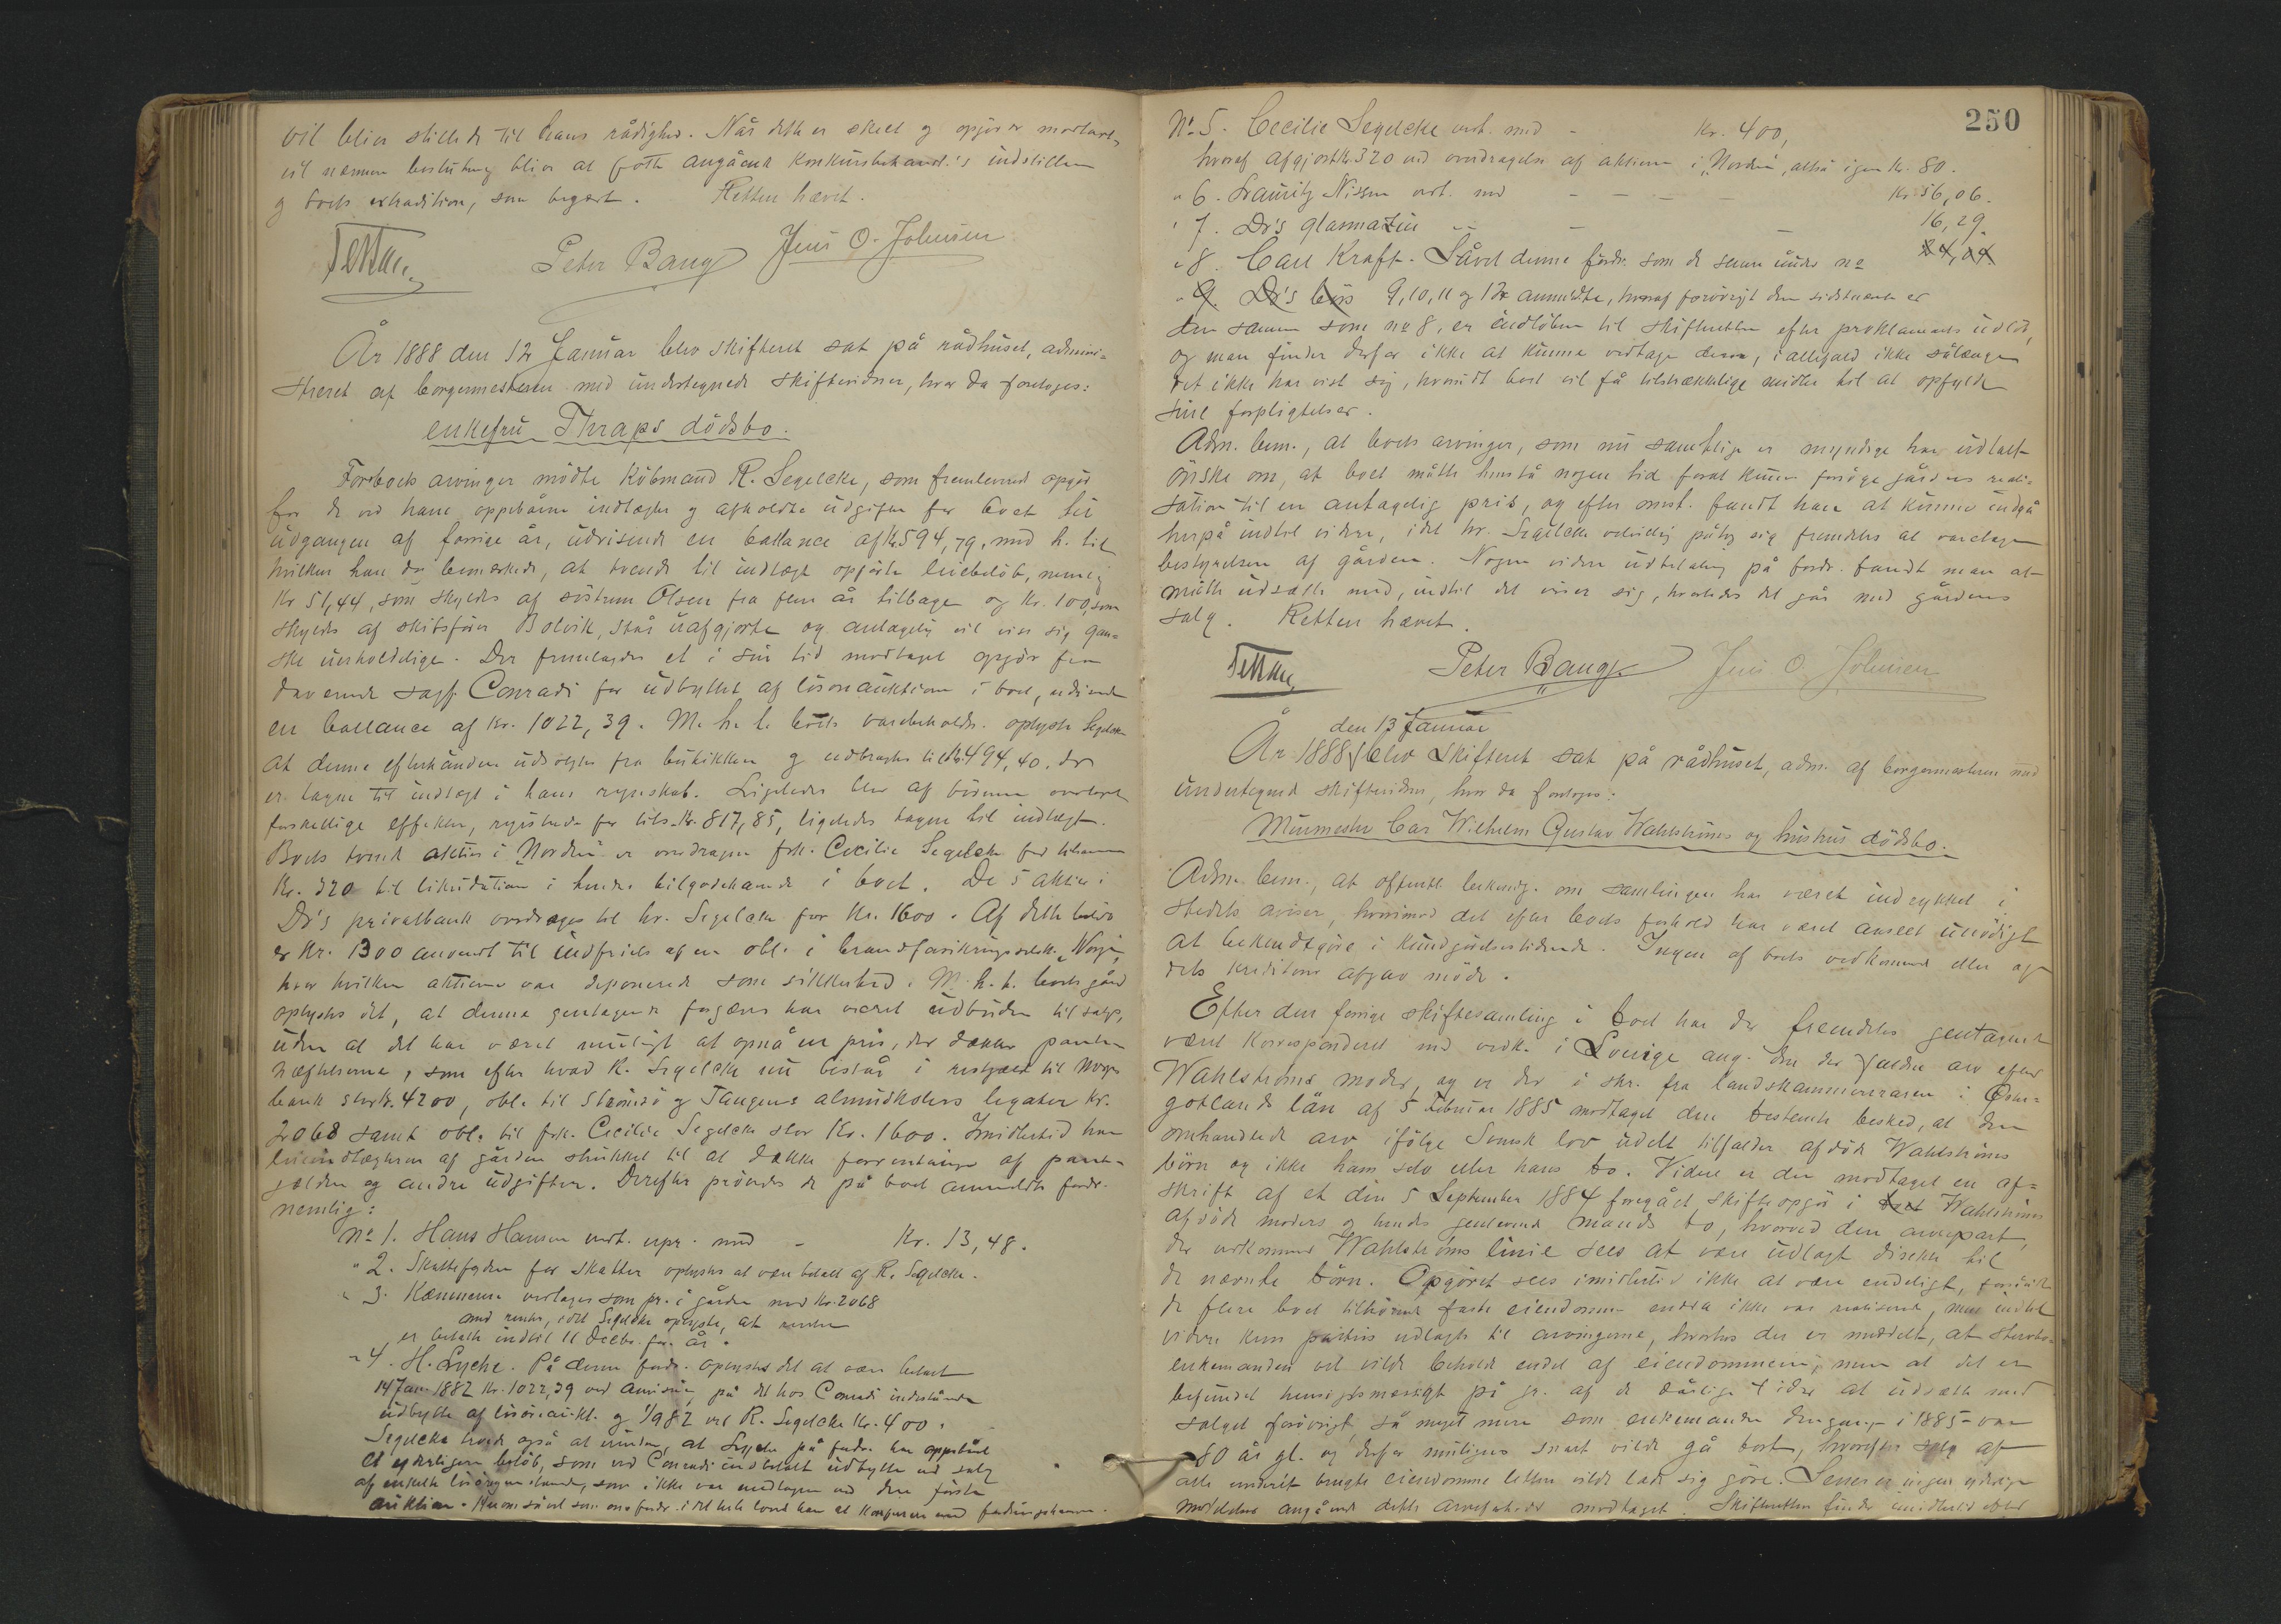 vil bliver stillede til hans rådighed. Når dette er skeet og opgjør er modtaget,
vil nærmere beslutning bliver at fatte angående konkursbehandl.'s indstillen
og boets extradition, som begjært. Retten hævet.
Peter Bang Jens O. Johnsen
År 1888 den 12 Januar blev skifteret sat på rådhuset, admini-
streret af borgermesteren med undertegnede skiftevidner, hvor da foretoges:
enkefru Thraps dödsbo.
For boets arvinger mödte Köbmand R. Segelcke, som fremleverede opgjör
for de ved ham oppebårne indtægter og afholdte udgifter for boet til
udgangen af forrige år, udvisende en ballance af Kr. 594,79, med h. til
hvilken han da bemærkede, at tvende til indtægt opförte leiebelöb, nemlig
Kr 51,44, som skyldes af söstrene Olsen fra flere år tilbage og Kr. 100, som
skyldes af skibsförer Bolvik, står uafgjorte og antagelig vil vise sig gan-
ske uerholdelige. Der fremlagdes et i sin tid modtaget opgjör fra
daværende sagf. Conradi for udbyttet af lösöreauktionen i boet, udvisende
en ballance af Kr. 1022,39. M. h. t. boets varebeholdn. oplyste Segelcke
at denne efterhånden udsolgtes fra butikken og udbragtes til Kr. 494,40, der
er tagen til indtægt i hans regnskab. Ligeledes blev af boet overtaget
forskellige effekter, for tils. Kr. 817,85, ligeledes tagen til indtægt.
Boets tvende aktier i "Norden" er overdragne frk. Cecilie Segelcke for tilsammen
Kr. 320 til likvidation i hendes tilgodehavende i boet. De 5 aktier i
Dr's privatbank overdroges til hr. Segelcke for Kr. 1600. Af dette belöb
er Kr. 1300 anvendt til indfrielse af en obl. i brandforsikringsselsk. "Norge",
hvor hvilken aktierne var deponerede som sikkerhed. M. h. t. boets gård
oplystes det, at denne gentagende forgæves har været udbuden til salgs,
uden at det har været muligt at opnå en pris, der dækker pante-
hæftelserne, som efter hvad R. Segelcke nu består i restgæld til Norges
bank stor Kr. 4200, obl. til Strömsö og Tangens almueskolers legater Kr.
2068 samt obl. til frk. Cecilie Segelcke stor Kr. 1600. Imidlertid har
leieindtægterne af gården strukket til at dække forrentningen af pante-
gjælden og andre udgifter. Derefter prövedes de på boet anmeldte fordr.
nemlig:
No 1. Hans Hansen vedt. upr. med - Kr. 13,48.
" 2. Skattefogden for skatter oplystes at være betalt af R. Segelcke.
" 3. Kæmneren vedtages som pr. i gården med Kr. 2068
med renter, idet Segelcke oplyste, at renten
er betalt indtil 11 Decbr. for. år.
" 4. H. Lyche. På denne fordr. oplystes det at være betalt
14 Jan. 1882 Kr. 1022,39 ved anvisning på det hos Conradi indestående
udbytte af lösöreaukt. og 1/9 82 ved R. Segelcke Kr. 400.
Segelcke troede også at vide, at Lyche på fordr. har oppebåret
et yderligere belöb, som ved Conradi indbetalt udbytte ved salg
af enkelte lösöregjenstande, som ikke var medtagen ved den förste
auktion.
250
No 5. Cecilie Segelcke vedt. med - Kr. 400,
hvoraf afgjort Kr. 320 ved overdragelse af aktierne i "Norden", altså igjen Kr. 80.
" 6. Lauritz Nissen vedt. med - - - - Kr. 56,06.
" 7. Dr's glasmagazin - - - 16,29.
" 8. Carl Kraft. Såvel denne fordr. som de senere under no 24,24
" 9. Dr's bys 9, 10, 11 og 12 anmeldte, hvoraf forövrigt den sidstnævnte er
den samme som no 8, er indlöben til skifteretten efter proklamaets udlöb,
og man finder derfor ikke at kunne vedtage denne, i allefald ikke sålænge
det ikke har vist sig, hvorvidt boet vil få tilstrækkelige midler til at opfylde
sine forpligtelser.
Adm. bem., at boets arvinger, som nu samtlige er myndige har udtalt
önske om, at boet måtte henstå nogen tid forat kunne forsöge gårdens reali-
sation til en antagelig pris, og efter omst. fandt han at kunne indgå
herpå indtil videre, idet hr. Segelcke velvillig påtog sig fremdeles at varetage
bestyrelsen af gården. Nogen videre udbetaling på fordr. fandt man at
måtte udsætte med, indtil det viser sig, hvorledes det går med gårdens
salg. Retten hævet.
Peter Bang Jens O. Johnsen
den 13 Januar
År 1888 blev skifteret sat på rådhuset, adm. af borgermesteren med
undertegnede skiftevidner, hvor da foretoges:
Murmester Carl Wilhelm Gustav Wahlströms og hustrus dödsbo.
Adm. bem., at offentl. bekendtg. om samlingen har været indrykket i
stedets aviser, hvorimod det efter boets forhold har været anseet unödigt
at bekendtgöre i Kundgörelsestidende. Ingen af boets vedkommende eller af
dets kreditorer afgav möde.
Efter den forrige skiftesamling i boet har der fremdeles gentagende
været korresponderet med vedk. i Sverige ang. den der faldne arv efter
Wahlströms moder, og er der i skr. fra landskammereraren i Öster-
gotlands län af 5 Februar 1885 modtaget den bestemte besked, at den
omhandlede arv ifölge Svensk lov udelt tilfalder afdöde Wahlströms
börn og ikke ham selv eller hans bo. Videre er der modtaget en af-
skrift af et den 5 September 1884 foregået skifteopgör i Wahlströms
afdöde moders og hendes gjenlevende mands bo, hvorved den arvepart,
der vedkommer Wahlströms linie sees at være udlagt direkte til
de nævnte börn. Opgöret sees imidlertid ikke at være endeligt, forsåvidt
de flere boet tilhörende faste eiendomme endda ikke var realiserede, men indtil
videre kun udlagte til arvingerne, hvorhos der er meddelt, at
enkemanden vel vilde beholde endel af eiendommene, men at det er
befundet hensigtsmæssigt på gr. af de dårlige tider at udsætte med
salget forövrigt, så meget mere som enkemanden dengang i 1885 var
80 år gl. og derfor muligens snart vilde gå bort, hvorefter salg af
alle eiendomme lettere vilde lade sig göre. Senere er ingen yderligere
meddelelse angående dette arvefald modtaget. Skifteretten finder imidlertid efter